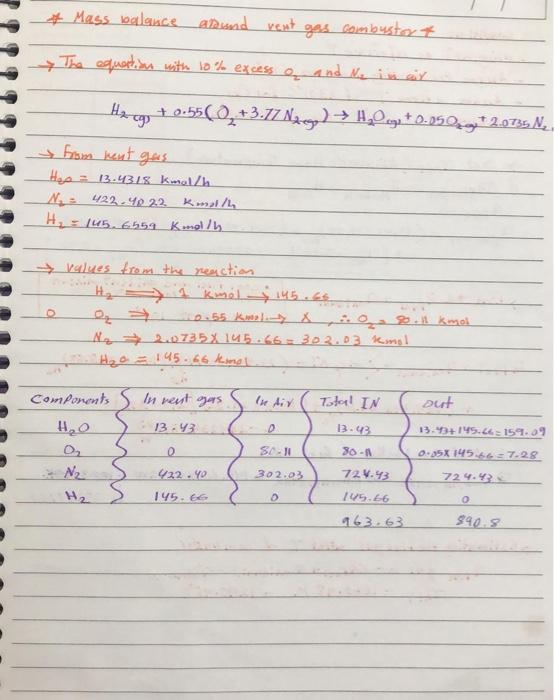 * Mass balance around vent gas combustor *
→ The equation with 10% excess O2 and N2 in air
H2(g) + 0.55(O2 + 3.77 N2(g)) → H2O(g) + 0.05O2(g) + 2.0735 N2
→ From vent gas
H2O = 13.4318 Kmol/h
N2 = 422.4022 Kmol/h
H2 = 145.6559 Kmol/h
→ values from the reaction
H2 ⟹ 1 kmol → 145.66
O O2 ⇒ 0.55 kmol → X , ∴ O2 = 80.11 kmol
N2 ⇒ 2.0735 X 145.66 = 302.03 kmol
H2O = 145.66 kmol
Components In vent gas In Air Total IN out
H2O 13.43 0 13.43 13.43+145.66=159.09
O2 0 80.11 80.11 0.05X145.66=7.28
N2 422.40 302.03 724.43 724.43
H2 145.66 0 145.66 0
963.63 890.8